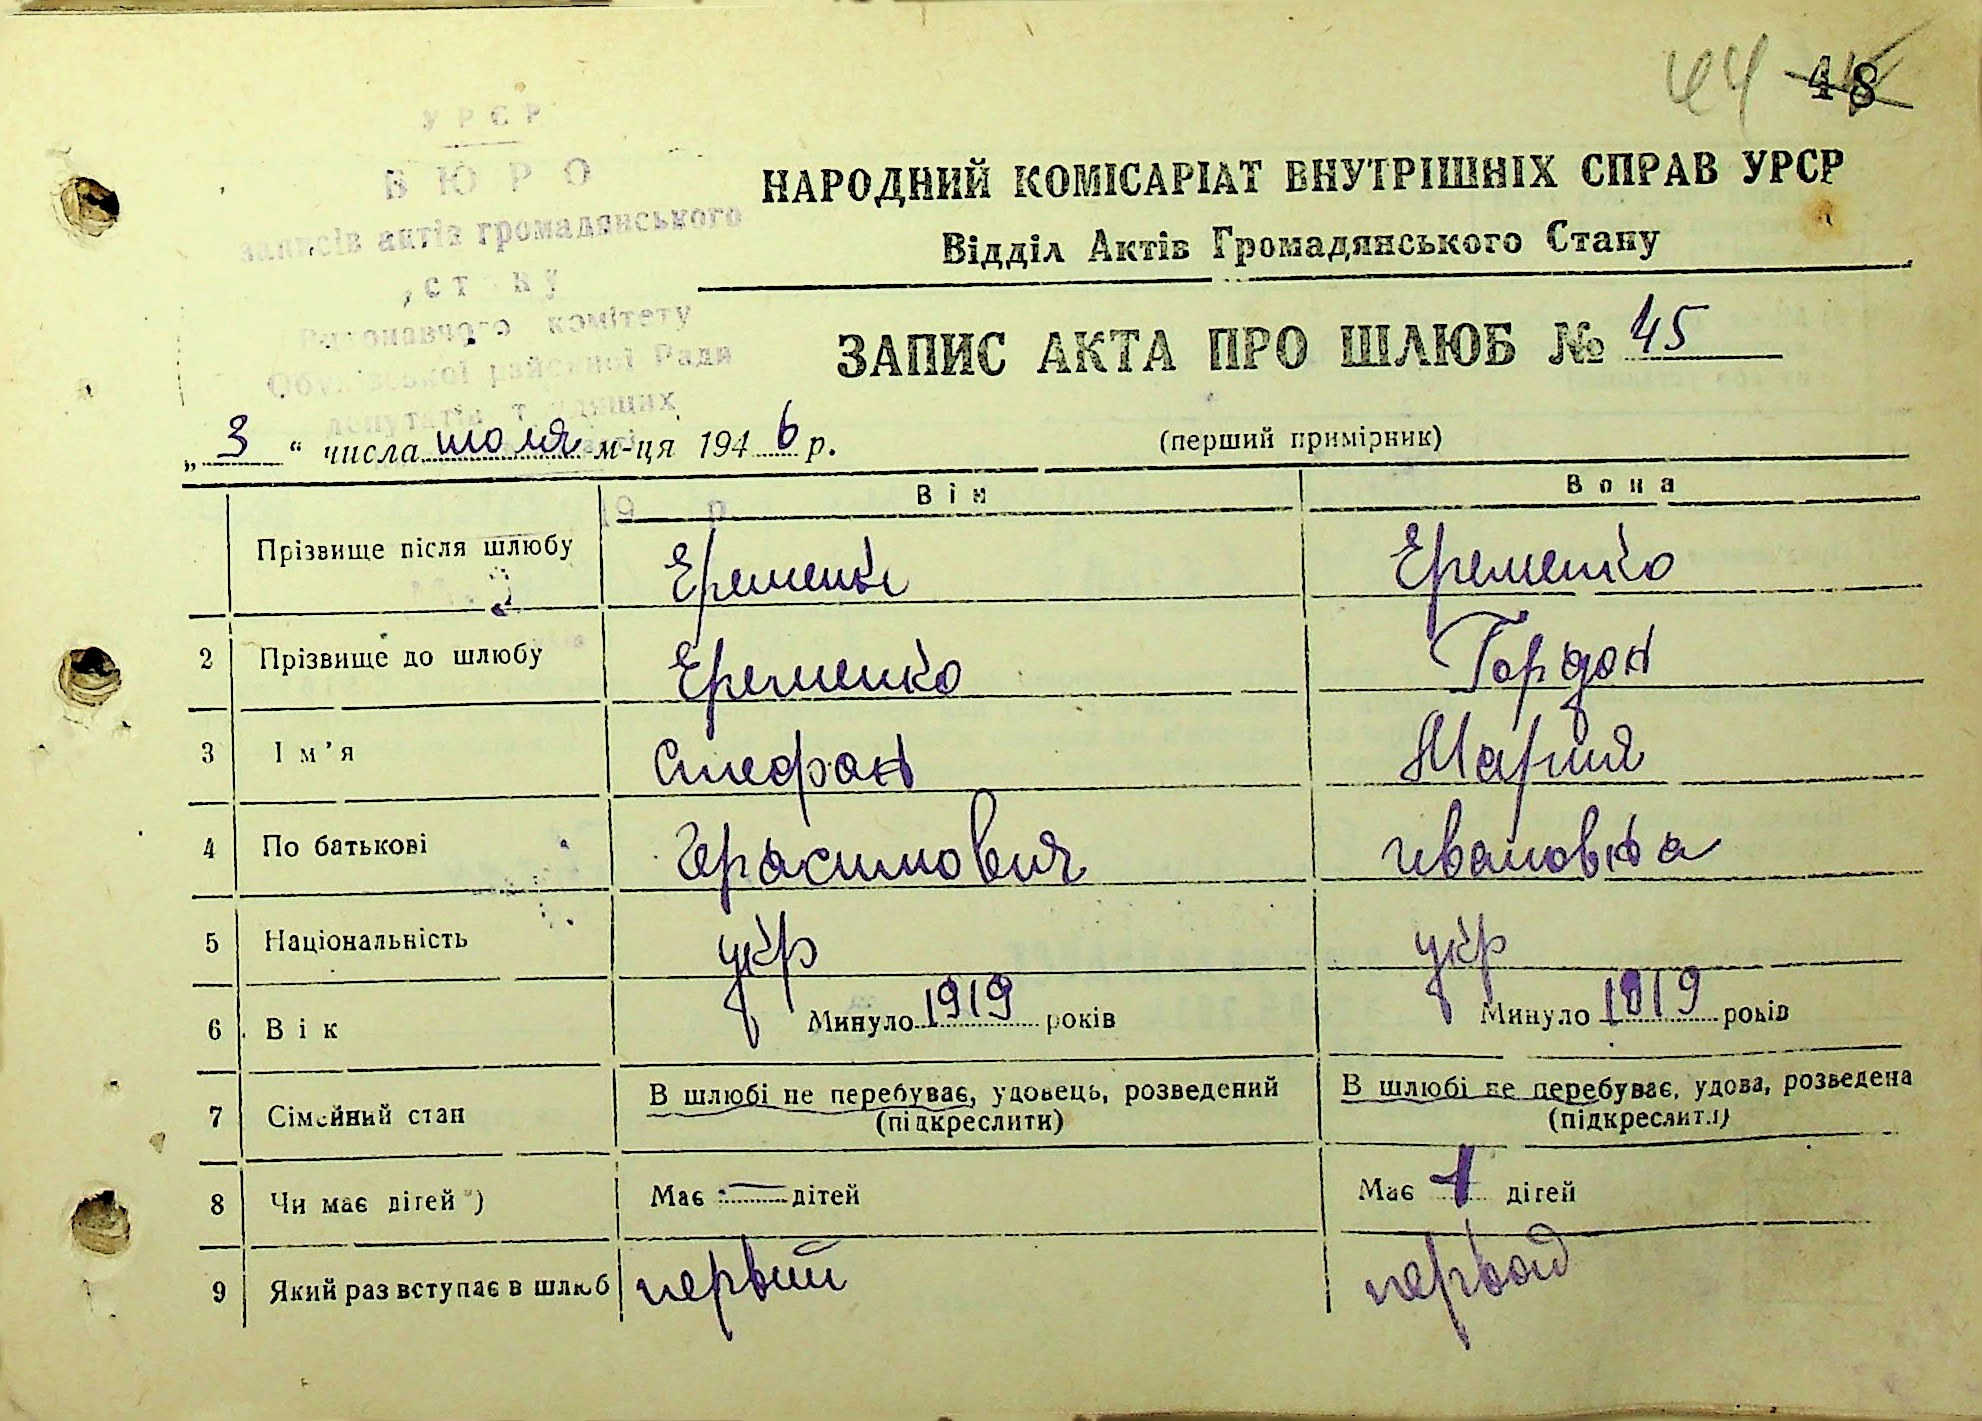 44 48
УРСР
БЮРО
записів актів громадянського
Виконавчого комітету
районної Ради
НАРОДНИЙ КОМІСАРІАТ ВНУТРІШНІХ СПРАВ УРСР
Відділ Актів Громадянського Стану
ЗАПИС АКТА ПРО ШЛЮБ № 45
„ 3 “ числа июля м-ця 1946 р.
(перший примірник)
19 р
Він Вона
Прізвище після шлюбу Еременко Еременко
2 Прізвище до шлюбу Еременко Гордон
3 Ім’я Стефан Мария
4 По батькові Герасимович Ивановна
5 Національність укр укр
6 Вік Минуло 1919 років Минуло 1919 років
7 Сімейний стан В шлюбі не перебуває, удовець, розведений В шлюбі не перебуває, удова, розведена
(підкреслити) (підкреслити)
8 Чи має дітей *) Має — дітей Має 1 дітей
9 Який раз вступає в шлюб первый первой